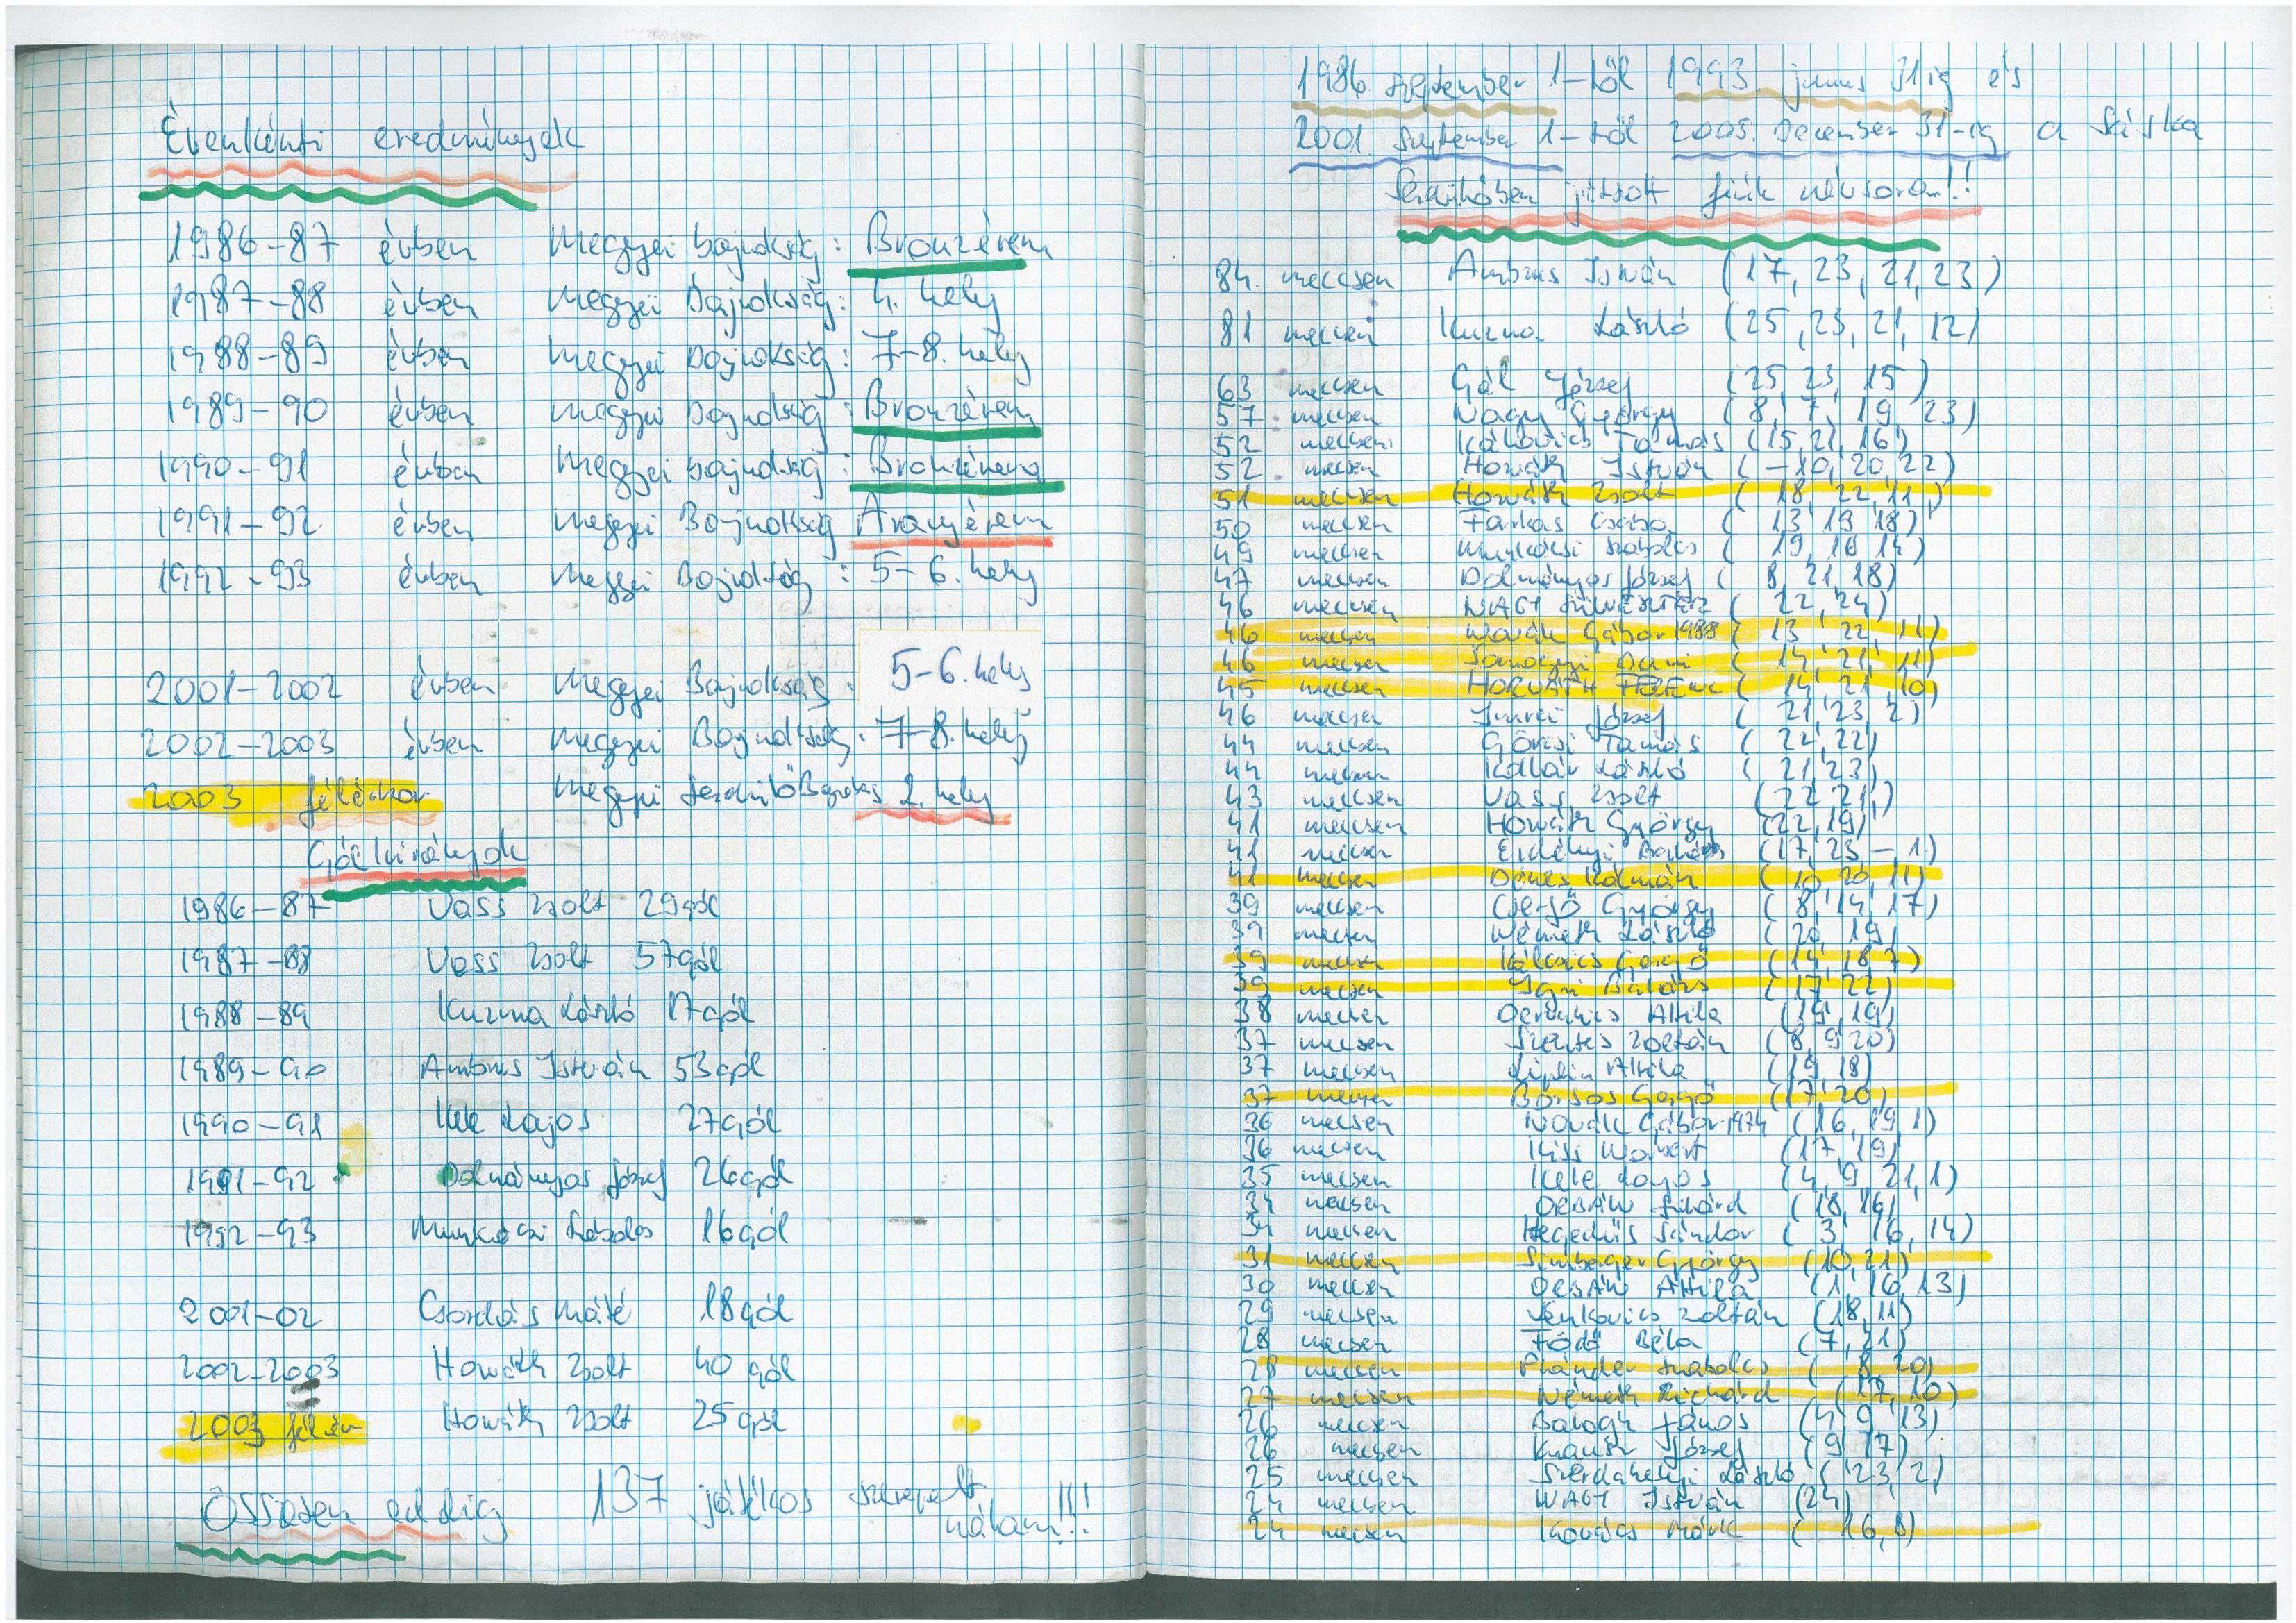 Évenkénti eredmények
1986-87 évben Megyei bajnokság: Bronzérem
1987-88 évben Megyei Bajnokság: 4. hely
1988-89 évben Megyei Bajnokság: 7-8. hely
1989-90 évben Megyei Bajnokság: Bronzérem
1990-91 évben Megyei bajnokság: Bronzérem
1991-92 évben Megyei Bajnokság Aranyérem
1992-93 évben Megyei Bajnokság: 5-6. hely
2001-2002 évben Megyei Bajnokság: 5-6. hely
2002-2003 évben Megyei Bajnokság: 7-8. hely
2003 félévkor Megyei Serdülő 2. hely
Gólkirályok
1986-87 Vass Zsolt 29 gól
1987-88 Vass Zsolt 57 gól
1988-89 Kuzma László 17 gól
1989-90 Ambrus István 53 gól
1990-91 Kele Lajos 27 gól
1991-92 Dolmányos József 26 gól
1992-93 Munkácsi Szabolcs 16 gól
2001-02 Csordás Máté 18 gól
2002-2003 Horváth Zsolt 40 gól
2003 félév Horváth Zsolt 25 gól
Összesen eddig 137 játékos szerepelt
nálam!!!
1986. szeptember 1-től 1993. junius 31ig és
2001. Szeptember 1-től 2003. December 31-ig a Sárka
Serdülőben játszott fiúk névsora!!
84. meccsen Ambrus István (17, 23, 21, 23)
81 meccsen Kuzma László (25, 23, 21, 12)
63 meccsen Gál József (25, 23, 15)
57 meccsen Nagy György (8, 7, 19, 23)
52 meccsen Tamás (15, 21, 16)
52 meccsen Horváth István (-10, 20, 22)
51 meccsen Horváth Zsolt (18, 22, 11,)
50 meccsen Farkas Csaba (13, 19, 18)
49 meccsen Munkácsi Szabolcs (19, 16, 14)
47 meccsen Dolmányos József (8, 21, 18)
46 meccsen NAGY SZILVESZTER (22, 24)
46 meccsen Novák Gábor 1988 (13, 22, 11)
46 meccsen Somogyi Dani (14, 21, 11)
45 meccsen HORVÁTH FERENC (14, 21, 10)
46 meccsen Imrei József (21, 23, 2)
44 meccsen Göncsi Tamás (22, 22)
44 meccsen Kallár László (21, 23)
43 meccsen Vass Zsolt (22, 21,)
41 meccsen Horváth György (22, 19)
41 meccsen Erdélyi Balázs (17, 23, -, 1)
41 meccsen Dénes Kálmán (10, 20, 11)
39 meccsen Cserjő György (8, 14, 17)
39 meccsen Németh László (20, 19)
39 meccsen Gergő (14, 18, 7)
39 meccsen Balázs (17, 22)
38 meccsen Attila (19, 19)
37 meccsen Szentes Zoltán (8, 9, 20)
37 meccsen Attila (19, 18)
37 meccsen Borsos Gergő (17, 20)
36 meccsen Novák Gábor 1974 (16, 19, 1)
36 meccsen Kiss Norbert (17, 19)
35 meccsen Kele Lajos (4, 9, 21, 1)
34 meccsen ORBÁN Szilárd (18, 16)
34 meccsen Hegedüs Sándor (3, 16, 14)
31 meccsen Simberger György (10, 21)
30 meccsen ORBÁN Attila (1, 16, 13)
29 meccsen Zoltán (18, 11)
28 meccsen Födő Béla (7, 21)
28 meccsen Pfánder Szabolcs (8, 20)
27 meccsen Németh Richárd (17, 10)
26 meccsen Balogh János (4, 9, 13)
26 meccsen Knausz József (9, 17)
25 meccsen Szerdahelyi László (23, 2)
24 meccsen NAGY István (24)
24 meccsen Kovács Márk (16, 8)